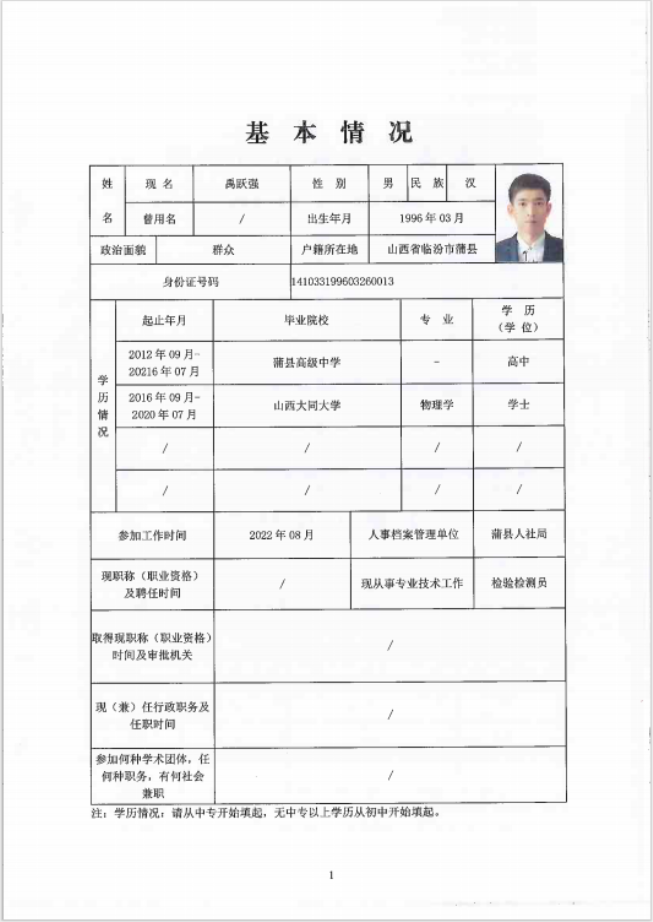 基 本 情 况
姓名 现 名 禹跃强 性 别 男 民 族 汉
曾用名 / 出生年月 1996 年 03 月
政治面貌 群众 户籍所在地 山西省临汾市蒲县
身份证号码 141033199603260013
学历情况 起止年月 毕业院校 专 业 学 历（学 位）
2012 年 09 月-20216 年 07 月 蒲县高级中学 - 高中
2016 年 09 月-2020 年 07 月 山西大同大学 物理学 学士
/ / / /
/ / / /
参加工作时间 2022 年 08 月 人事档案管理单位 蒲县人社局
现职称（职业资格）及聘任时间 / 现从事专业技术工作 检验检测员
取得现职称（职业资格）时间及审批机关 /
现（兼）任行政职务及任职时间 /
参加何种学术团体，任何种职务，有何社会兼职 /
注：学历情况：请从中专开始填起，无中专以上学历从初中开始填起。
1